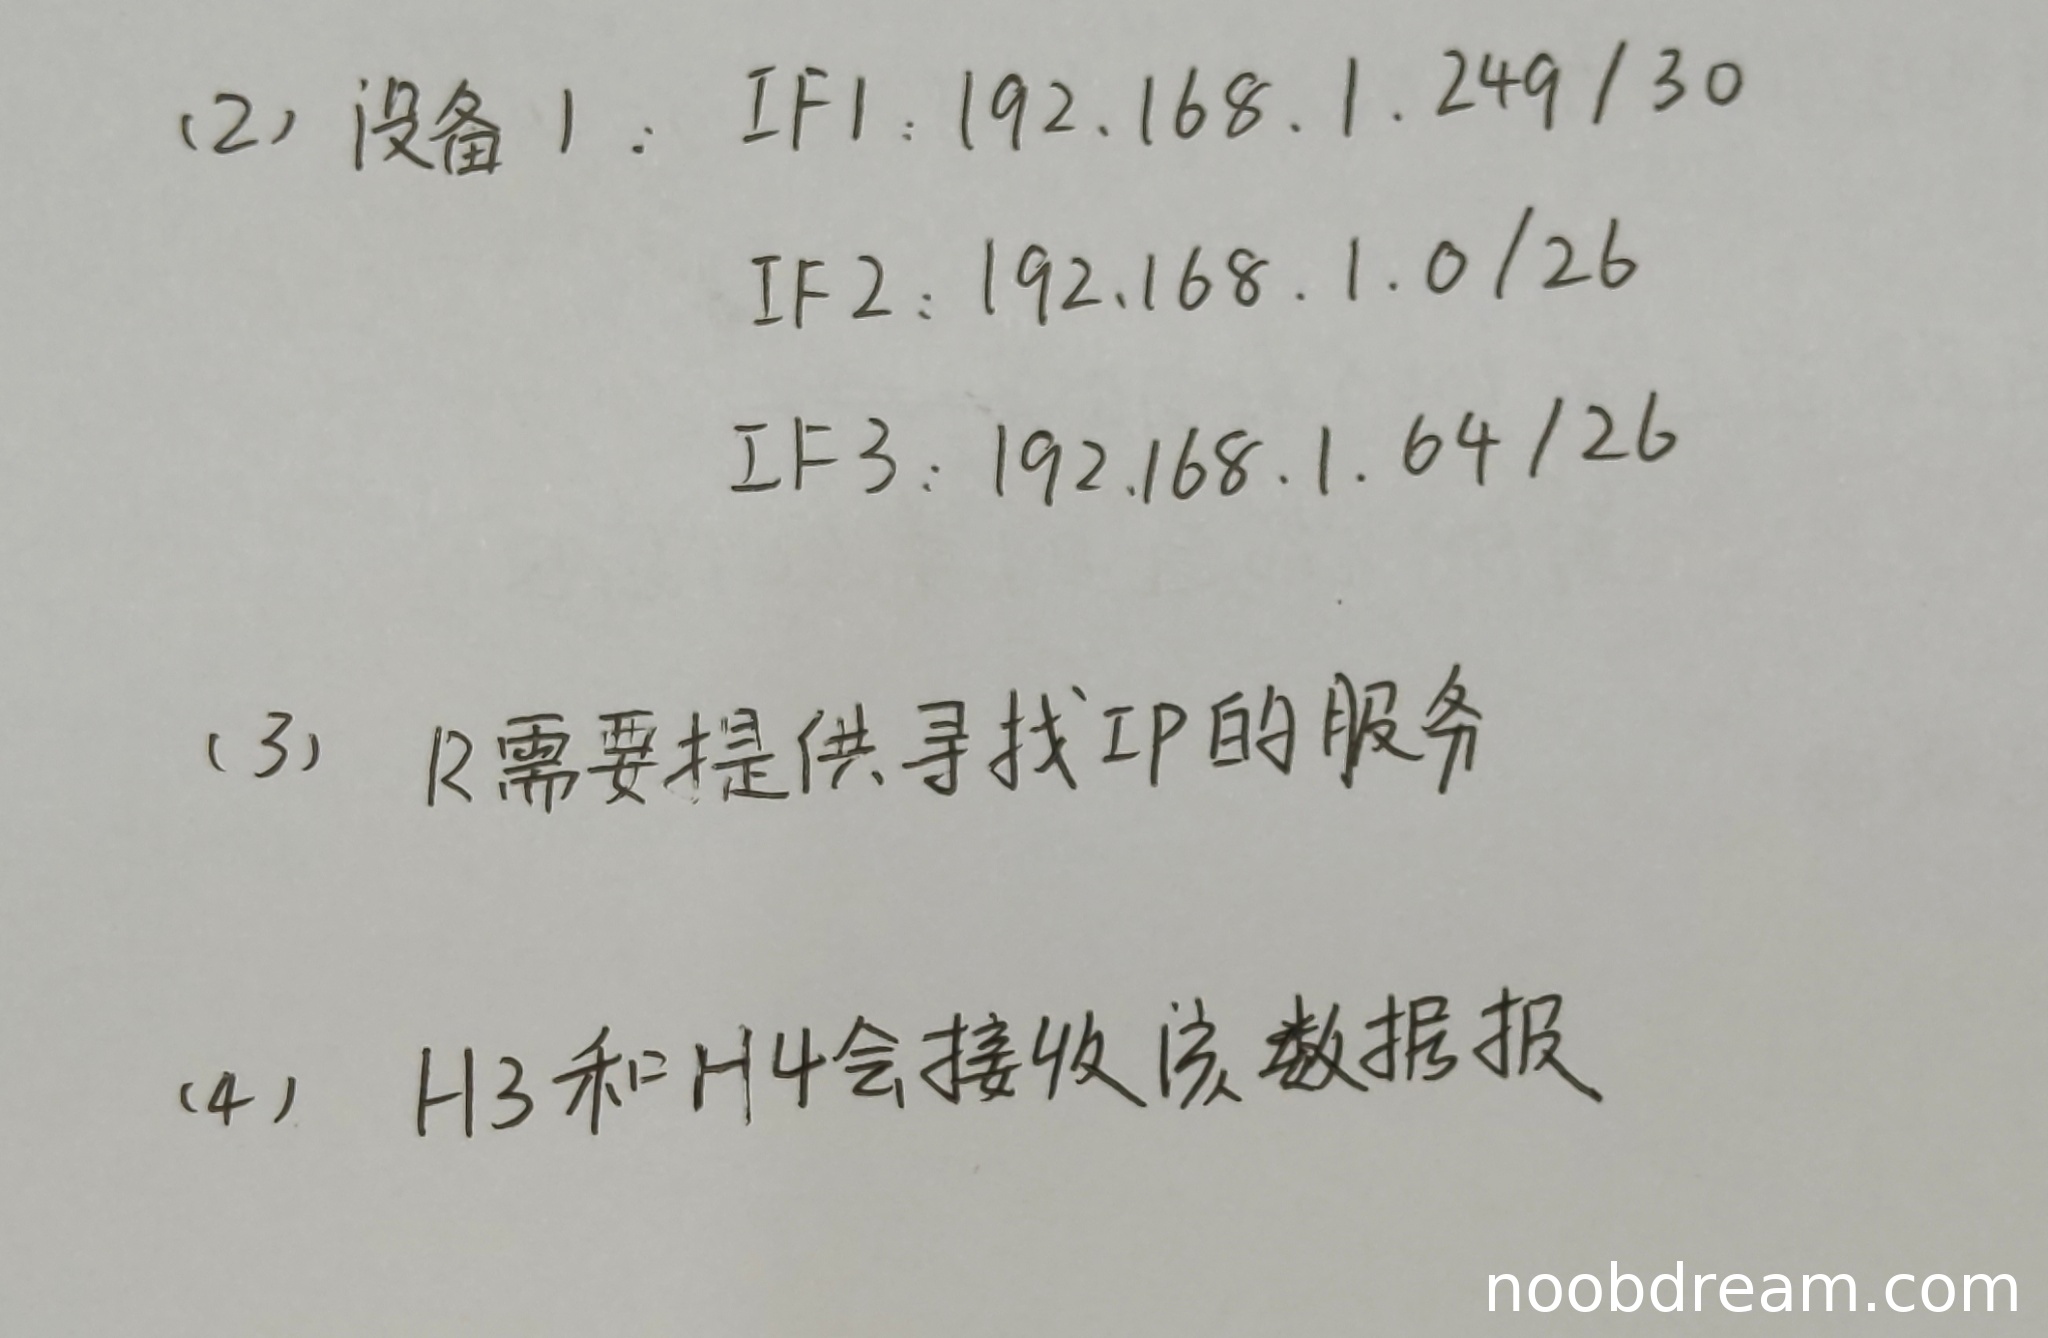 (2) 设备1: IF1: 192.168.1.249/30
IF2: 192.168.1.0/26
IF3: 192.168.1.64/26
(3) R需要提供寻找IP的服务
(4) H3和H4会接收该数据报
noobdream.com